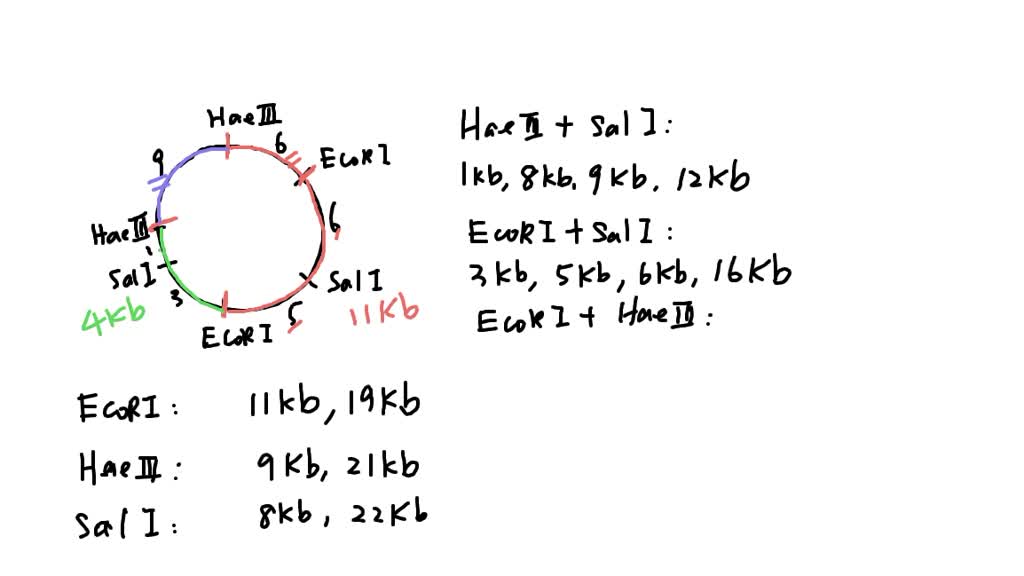 HaeIII
6
EcoRI
9
HaeIII
6
1
SalI
SalI
3
4kb
5
11kb
EcoRI
HaeIII + SalI:
1kb, 8kb, 9kb, 12kb
EcoRI + SalI:
3kb, 5kb, 6kb, 16kb
EcoRI + HaeIII:
EcoRI: 11kb, 19kb
HaeIII: 9kb, 21kb
SalI: 8kb, 22kb